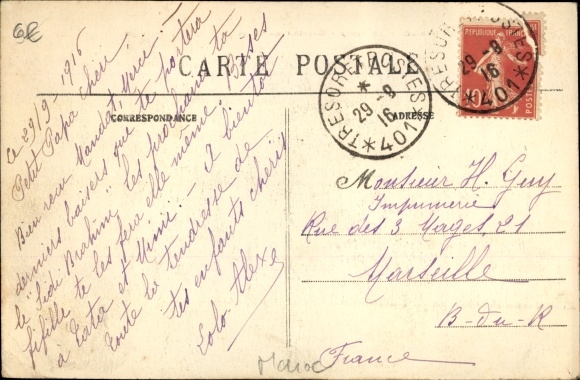 6€
CARTE POSTALE
CORRESPONDANCE
ADRESSE
Ce 29/9 1916
Petit Papa cheri
Bien reçu Mandat, Merci.
derniers baisers que te portera
le "Sidi Brahim" les prochains ta
fifille te les fera elle même. Bises
à Tatia et Mimi. - A bientôt
toute la tendresse de
tes enfants cheris
Lolo Alex
REPUBLIQUE FRANÇAISE
10
POSTES
TRESOR ET POSTES
29-9
16
* 401 *
TRESOR ET POSTES
29-9
16
* 401 *
Monsieur H. Guy
Imprimerie
Rue des 3 Mages, 21
Marseille
B-du-R
France
Maroc